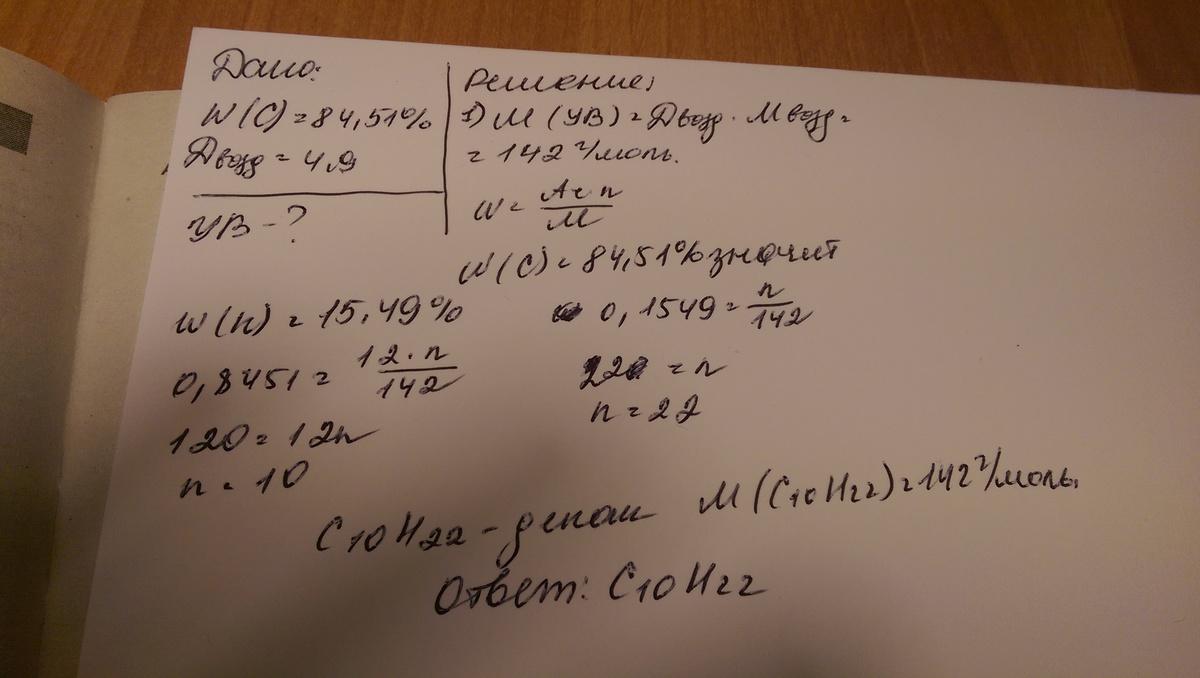 Дано:
W(C) = 84,51%
Dвозд = 4,9
УВ - ?
Решение:
1) M (УВ) = Dвозд · Mвозд =
= 142 г/моль.
W = Ar n / M
W(C) = 84,51% значит
W(H) = 15,49%
0,8451 = 12·n / 142
120 = 12n
n = 10
0,1549 = n / 142
22 = n
n = 22
C10H22 - декан M(C10H22) = 142 г/моль.
Ответ: C10H22